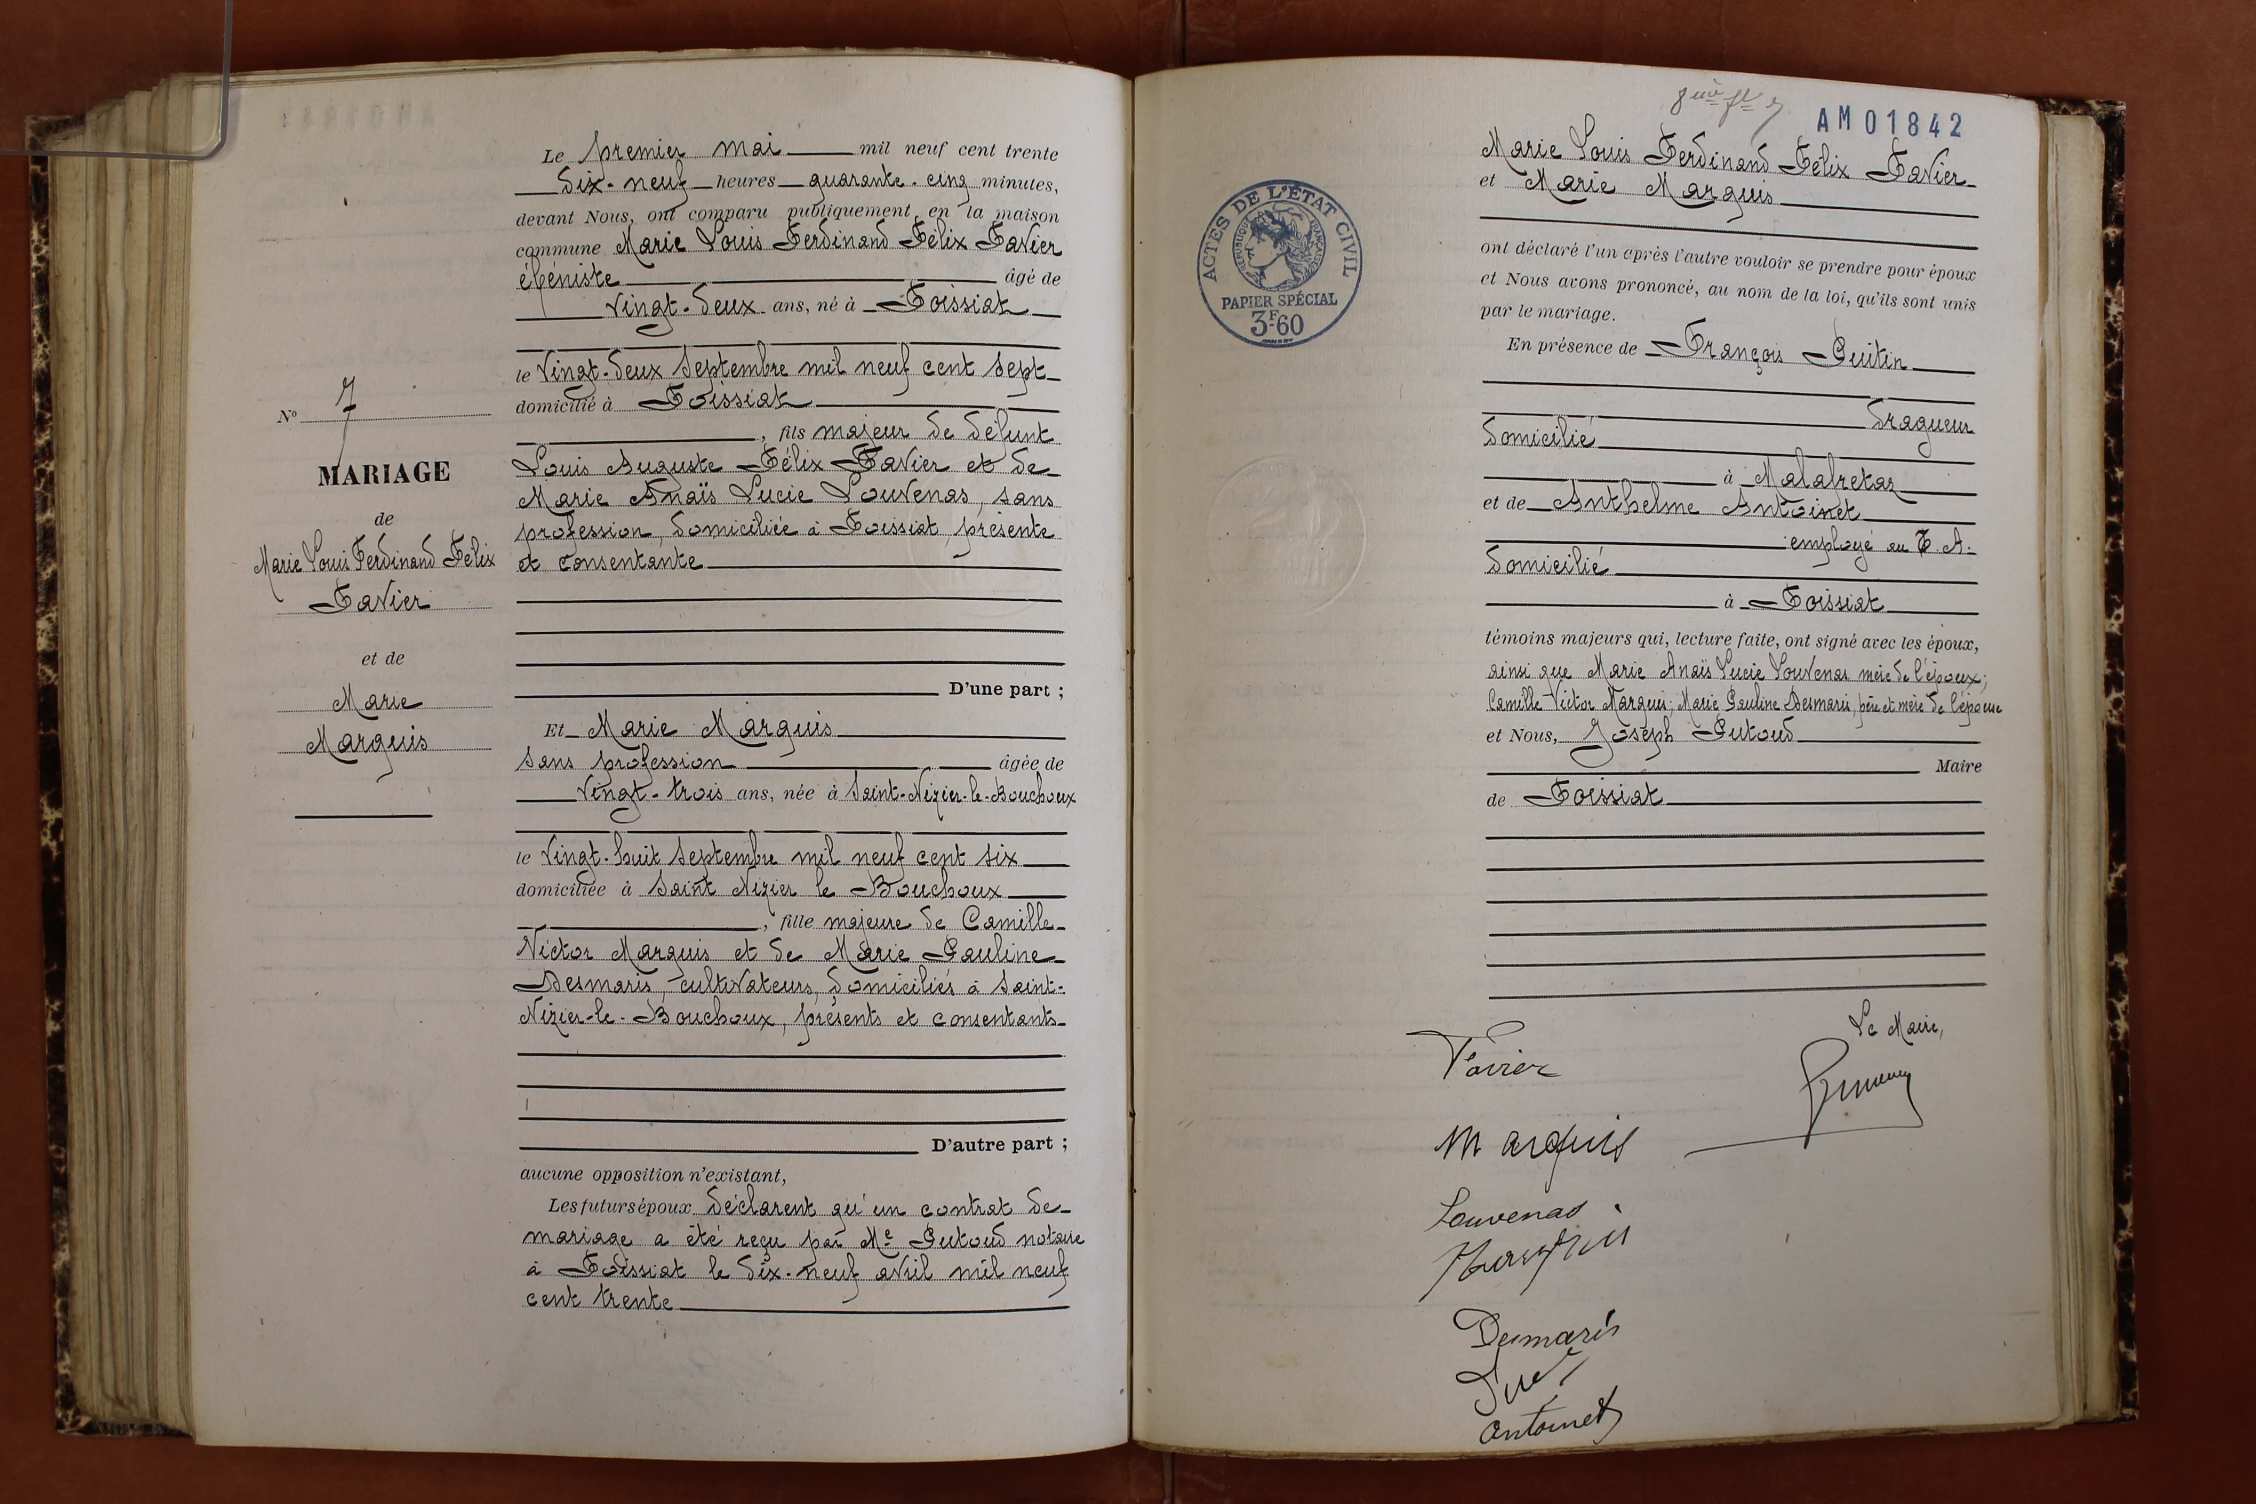 Le premier mai mil neuf cent trente
dix-neuf heures quarante-cinq minutes,
devant Nous, ont comparu publiquement en la maison
commune Marie Louis Ferdinand Félix Favier
ébéniste âgé de
vingt-deux ans, né à Foissiat
le vingt-deux septembre mil neuf cent sept
domicilié à Foissiat
, fils majeur de défunt
Louis Auguste Félix Favier et de
Marie Anaïs Lucie Louvenas, sans
profession, domiciliée à Foissiat, présente
et consentante
D'une part ;
Et Marie Marquis
sans profession âgée de
vingt-trois ans, née à Saint-Nizier-le-Bouchoux
le vingt-huit septembre mil neuf cent six
domiciliée à Saint Nizier le Bouchoux
, fille majeure de Camille
Victor Marquis et de Marie Pauline
Desmaris, cultivateurs, domiciliés à Saint-
Nizier-le-Bouchoux, présents et consentants
D'autre part ;
aucune opposition n'existant,
Les futurs époux déclarent qu'un contrat de
mariage a été reçu par Me Putoud notaire
à Foissiat le dix-neuf avril mil neuf
cent trente
No 7
MARIAGE
de
Marie Louis Ferdinand Félix
Favier
et de
Marie
Marquis
AM01842
Marie Louis Ferdinand Félix Favier
et Marie Marquis
ont déclaré l'un après l'autre vouloir se prendre pour époux
et Nous avons prononcé, au nom de la loi, qu'ils sont unis
par le mariage.
En présence de François Puitin
dragueur
domicilié
à Malafretaz
et de Anthelme Antoinet
employé au T. A.
domicilié
à Foissiat
témoins majeurs qui, lecture faite, ont signé avec les époux,
ainsi que Marie Anaïs Lucie Louvenas mère de l'époux;
Camille Victor Marquis; Marie Pauline Desmaris, père et mère de l'épouse
et Nous, Joseph Putoud
Maire
de Foissiat
ACTES DE L'ÉTAT CIVIL
RÉPUBLIQUE FRANÇAISE
PAPIER SPÉCIAL
3F60
Le Maire,
Favier
Marquis
Louvenas
Marquis
Desmaris
Antoinet